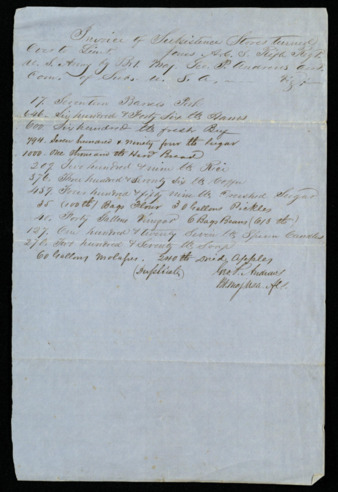 Invoice of Subsistence Stores turned
over to Lieut Jones A.C.S. Fifth Regt
U.S. Army by Bvt Maj. Geo. P. Andrews Act
Com. of Subs. U.S.A.
17. Seventeen Barrels Pork
646. Six hundred & Forty Six lb Hams
600 Six hundred lb fresh Beef
794. Seven hundred & ninety four lb Sugar
1000. One Thousand lb Hard Bread
209 Two hundred & nine lb Rice
376 Three hundred & Seventy Six lb Coffee
459 Four hundred & fifty nine lb Crushed Sugar
35 (100 lb) Bags Flour 30 Gallons Pickles
40. Forty Gallons Vinegar 6 Bags Beans (618 lb)
127. One hundred & twenty Seven lb Sperm Candles
270 Two hundred & Seventy lb Soap
60 Gallons molasses. 200 lb dried Apples
(Duplicate) Geo P. Andrews
Bt Maj USA